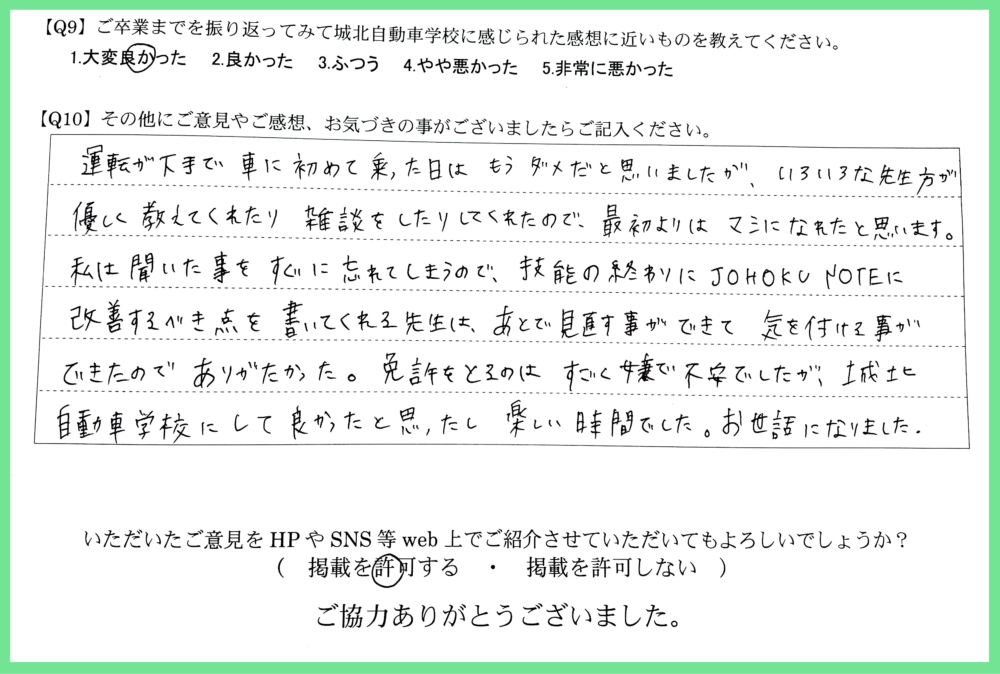 【Q9】ご卒業までを振り返ってみて城北自動車学校に感じられた感想に近いものを教えてください。
1.大変良かった　2.良かった　3.ふつう　4.やや悪かった　5.非常に悪かった
【Q10】その他にご意見やご感想、お気づきの事がございましたらご記入ください。
運転が下手で 車に初めて乗った日は もうダメだと思いましたが、いろいろな先生方が
優しく教えてくれたり 雑談をしたりしてくれたので、最初よりは マシになれたと思います。
私は聞いた事をすぐに忘れてしまうので、技能の終わりにJOHOKU NOTEに
改善するべき点を書いてくれる先生は、あとで見直す事ができて 気を付ける事が
できたので ありがたかった。免許をとるのは すごく嫌で不安でしたが、城北
自動車学校にして良かったと思ったし 楽しい時間でした。お世話になりました.
いただいたご意見をHPやSNS等web上でご紹介させていただいてもよろしいでしょうか？
（　掲載を許可する　・　掲載を許可しない　）
ご協力ありがとうございました。